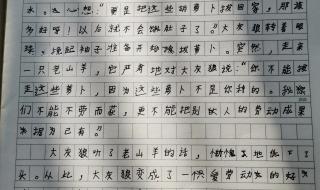 水。心想：“要是把这些胡萝卜拔回家，那该
多好呀！以后就不会饿肚子了。”大灰狼转着眼
珠，挽起袖子准备动手拔萝卜。突然，走来
一只老山羊，它严肃地对大灰狼说：“你不能拔
走这些萝卜，因为这些萝卜不是你种的。我
们不能不劳而获，更不能把别人的劳动成果
占据为己有。”
大灰狼听了老山羊的话，惭愧地低下了
头。从此，大灰狼变成了一只爱劳动的好